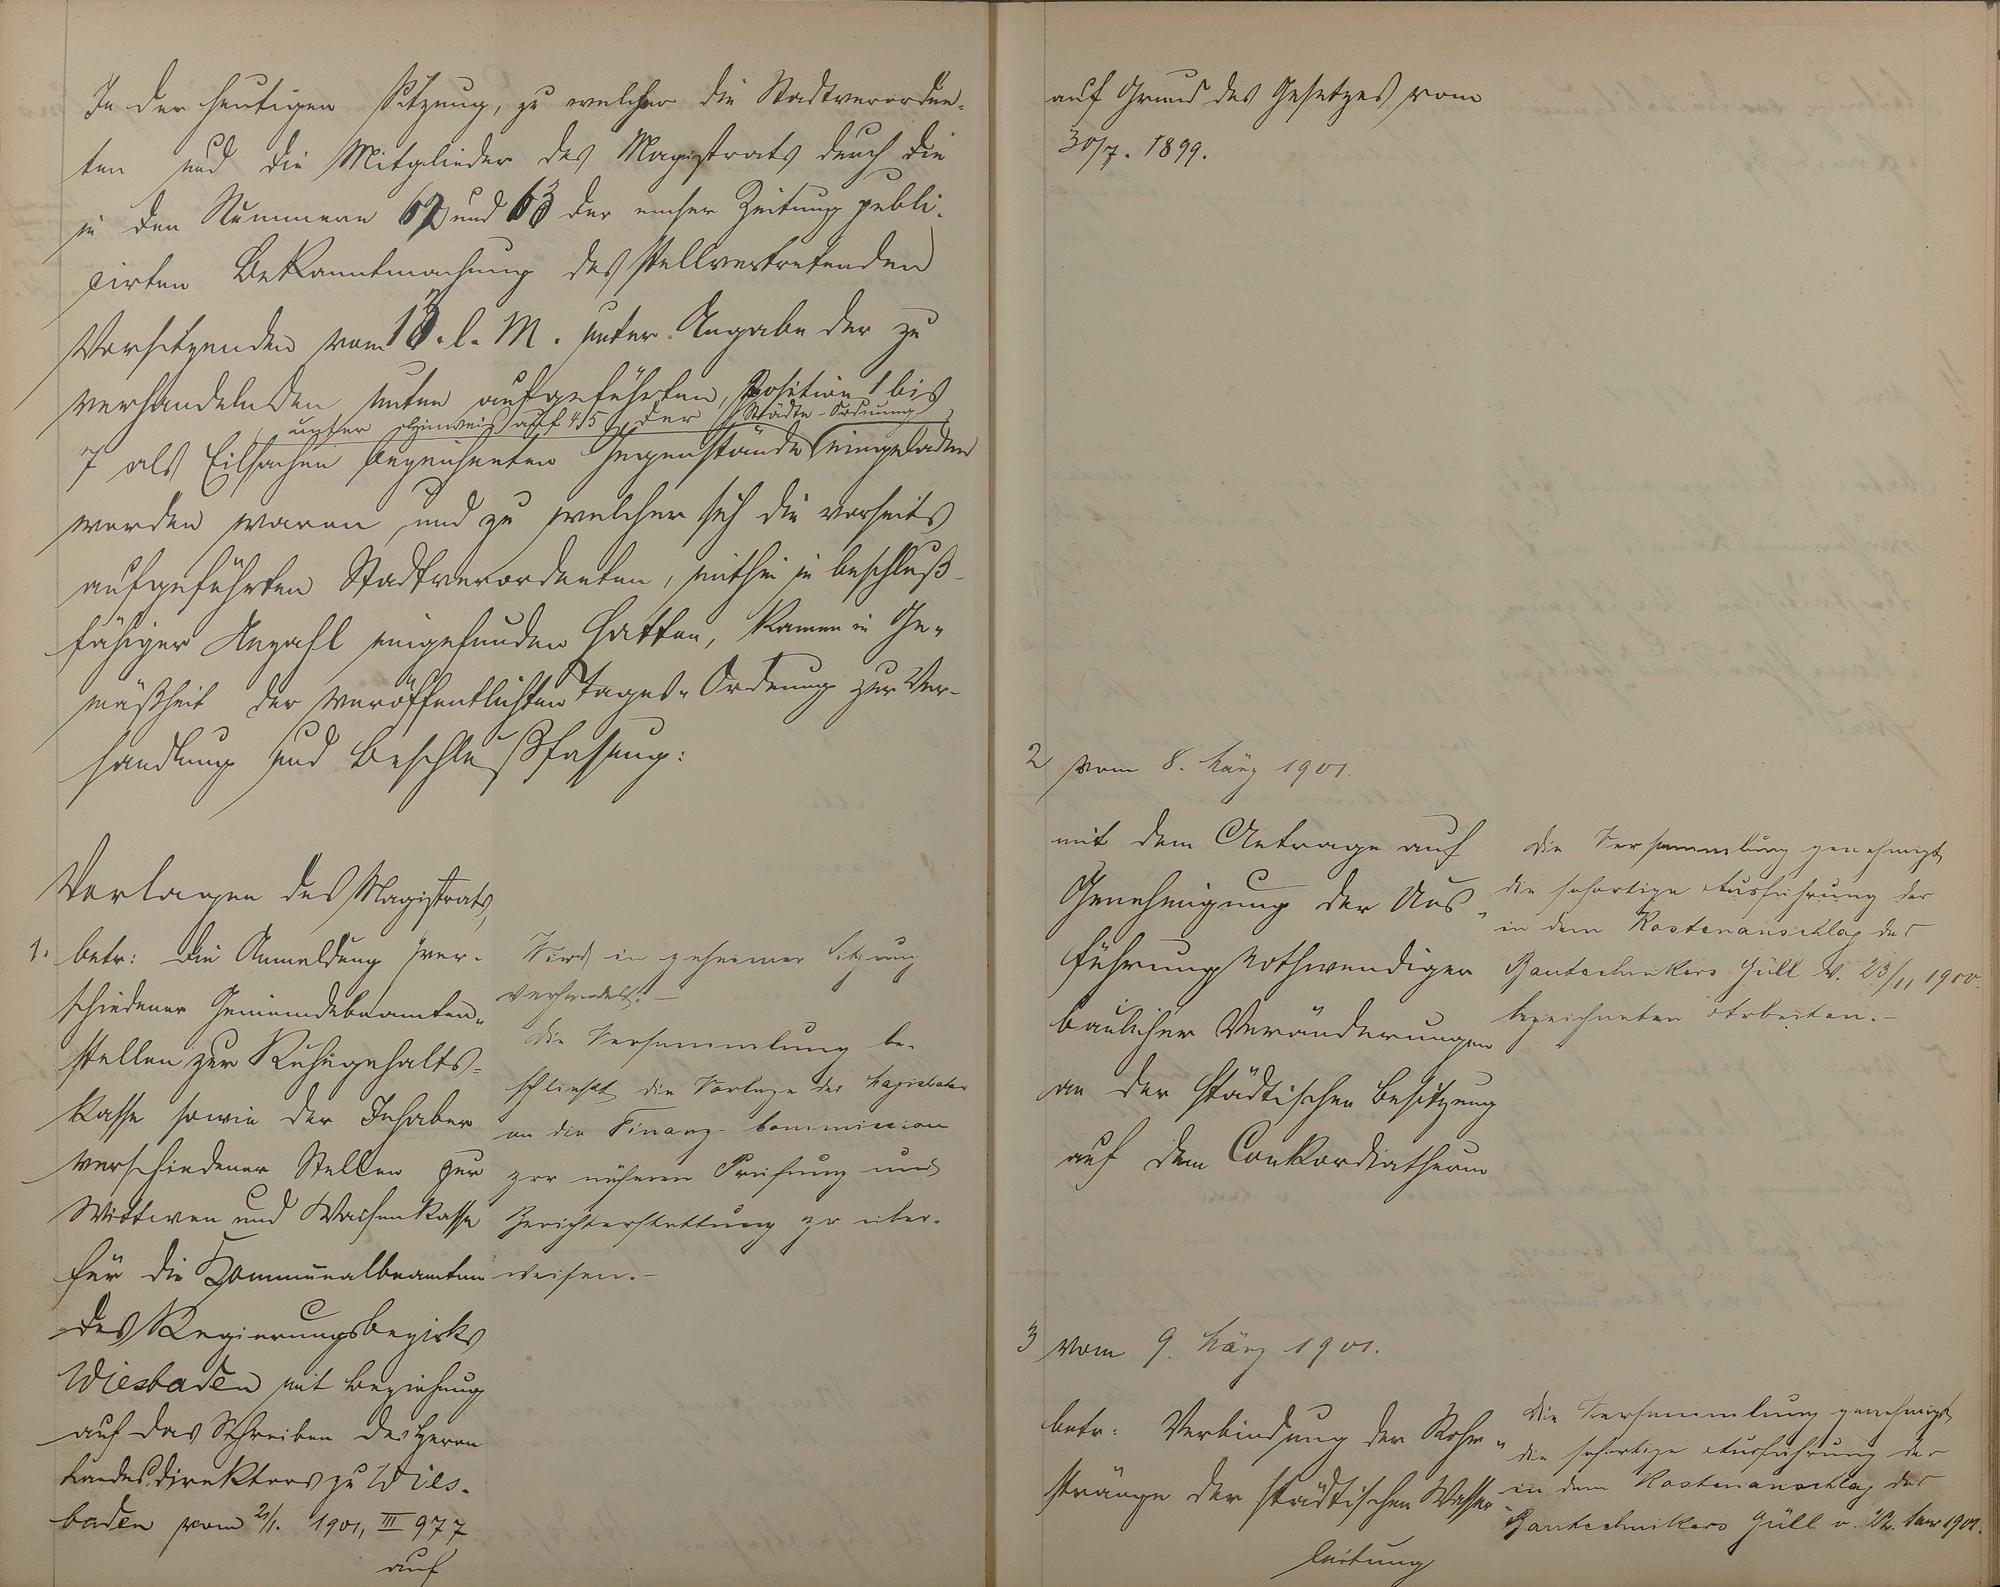 In der heutigen Sitzung, zu welcher die Stadtverordne-
ten und die Mitglieder des Magistrats durch die
in den Nummern 62 und 63 der emser Zeitung publi-
cirten Bekanntmachung des stellvertretenden
Vorsitzenden vom 13. l. M. unter Angabe der zu
verhandelnden unten aufgeführten, Position 1 bis
unter Hinweis auf § 45 der Städte-Ordnung
7 als Eilsachen bezeichneten Gegenstände eingeladen
worden waren und zu welcher sich die vorseits
aufgeführten Stadtverordneten, mithin in beschluß-
fähiger Anzahl eingefunden hatten, kamen in Ge-
mäßheit der veröffentlichten Tages-Ordnung zur Ver-
handlung und Beschlußfassung:
Vorlagen des Magistrats,
1. betr: die Anmeldung ver-
schiedener Gemeindebeamten-
stellen zur Ruhegehalts-
kasse sowie der Inhaber
verschiedener Stellen zur
Wittwen und Waisenkasse
für die Kommunalbeamten
des Regierungsbezirks
Wiesbaden mit Beziehung
auf das Schreiben des Herrn
Landesdirektors zu Wies-
baden vom 2/1. 1901, III 977
auf
Wird in geheimer Sitzung
verhandelt.-
Die Versammlung be-
schließt die Vorlage des Magistrats
an die Finanz-Commission
zur näheren Prüfung und
Berichterstattung zu über-
weisen.-
auf Grund des Gesetzes vom
30/7. 1899.
2 vom 8. März 1901.
mit dem Antrage auf
Genehmigung der Aus-
führung nothwendiger
baulicher Veränderungen
an der städtischen Besitzung
auf dem Conkordiathurm
Die Versammlung genehmigt
die sofortige Ausführung der
in dem Kostenanschlag des
Bautechnikers Güll v. 23/11 1900.
bezeichneten Arbeiten.-
3 vom 9. März 1901.
betr: Verbindung der Rohr-
stränge der städtischen Wasser-
leitung
Die Versammlung genehmigt
die sofortige Ausführung der
in dem Kostenanschlag des
Bautechnikers Güll v. 22. 1901.